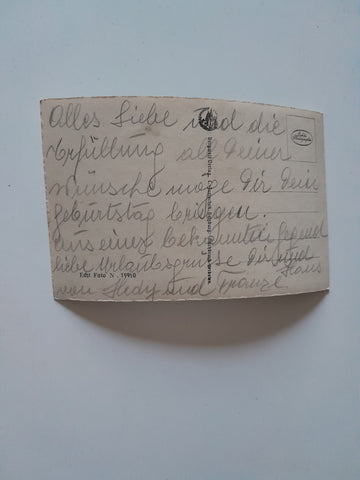 Alles Liebe und die
Erfüllung all Deiner
Wünsche möge Dir Dein
Geburtstag bringen.
Aus einer bekannten Gegend
liebe Urlaubsgrüsse Dir und
Hans
von Hedy und Franzl
Edit Foto N. 19910